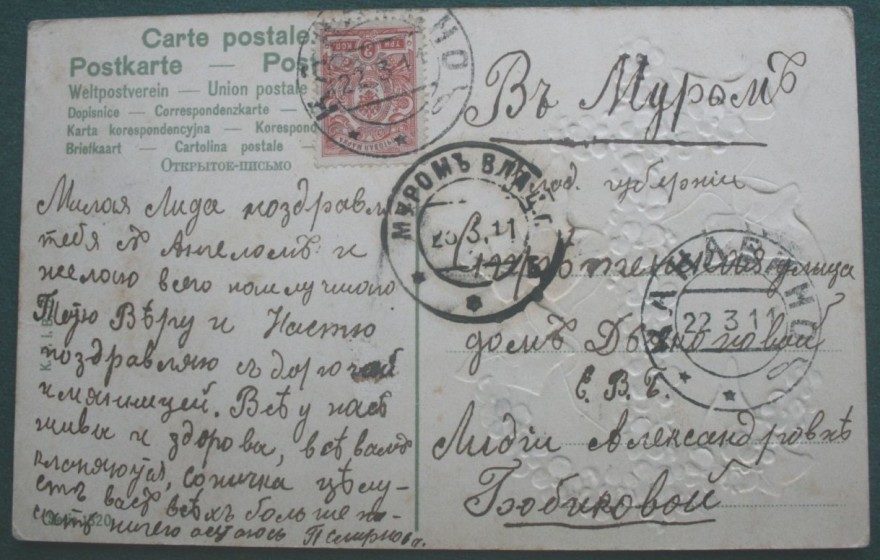 Carte postale.
Postkarte — Post
Weltpostverein — Union postale
Dopisnice — Correspondenzkarte —
Karta korespondencyjna — Korespon
Briefkaart — Cartolina postale —
ОТКРЫТОЕ-ПИСЬМО
22 3 11
МУРОМЪ ВЛАД. Г.
3.11
22 3 11
Милая Лида поздравл
тебя съ Ангеломъ и
желаю всего наилучшаго
Тетю Вѣру и Настю
поздравляю съ дорогой
имянницей. Всѣ у насъ
живы и здоровы, всѣ вамъ
кланяются,
васъ всѣхъ больше
ничего остаюсь П Смирнова.
Въ Муромъ
Влад. губернiи
улица
домъ
С. В. Б.
Лидiи Александровнѣ
Бобиковой